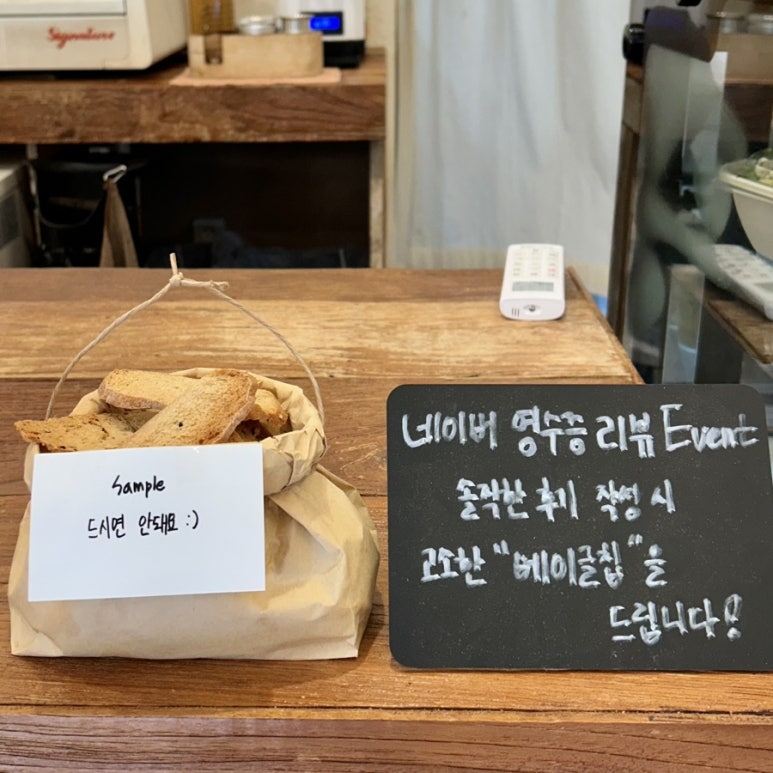 Signature
Sample
드시면 안돼요 :)
네이버 영수증 리뷰 Event
솔직한 후기 작성 시
고소한 "베이글칩"을
드립니다!